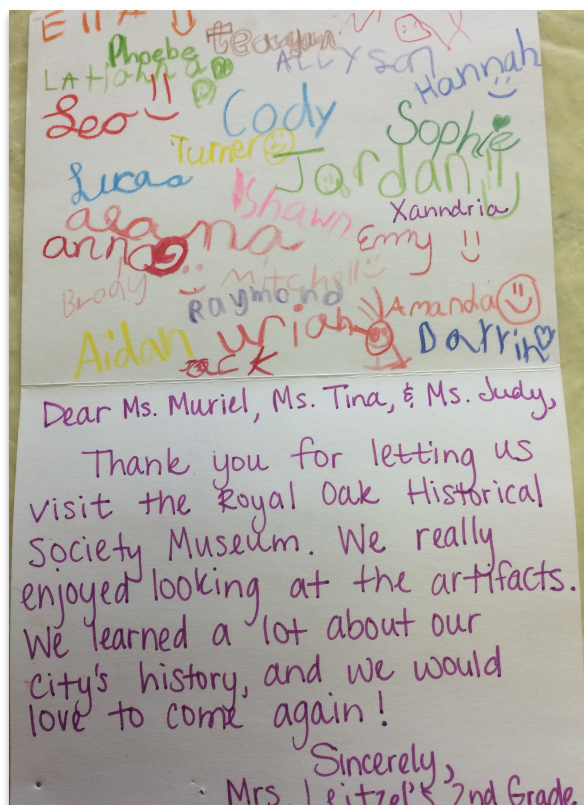 Ella
Phoebe Teagan
LATIANNA ALLYSON
Hannah
Leo Cody
Sophie
Turner
Jordan!!
Lucas
Shawn
Xanndria
alana
anna Emmy
Brody Mitchell
Raymond Amanda
Uriah
Aidan Darrin
Dear Ms. Muriel, Ms. Tina, & Ms. Judy,
Thank you for letting us
visit the Royal Oak Historical
Society Museum. We really
enjoyed looking at the artifacts.
We learned a lot about our
city's history, and we would
love to come again!
Sincerely,
Mrs. Leitzel's 2nd Grade